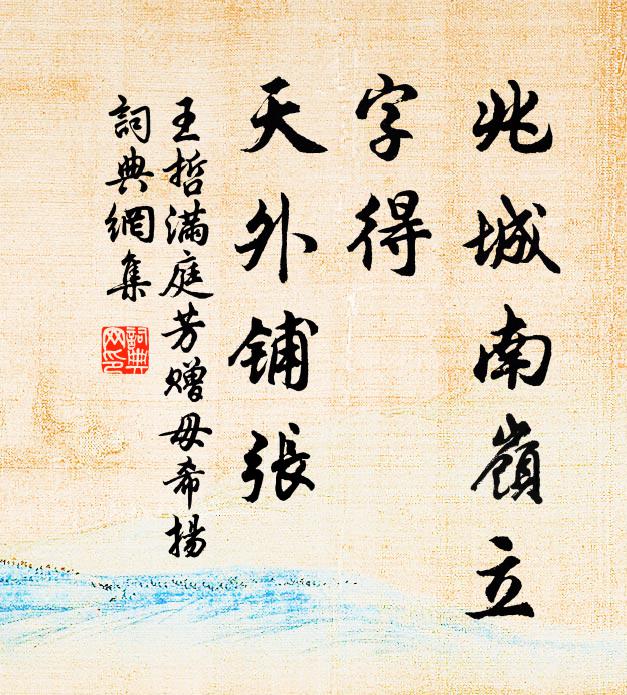 兆城南嶺立
字得
天外鋪張
王哲滿庭芳贈毋希揚
詞典網集
詞典網印